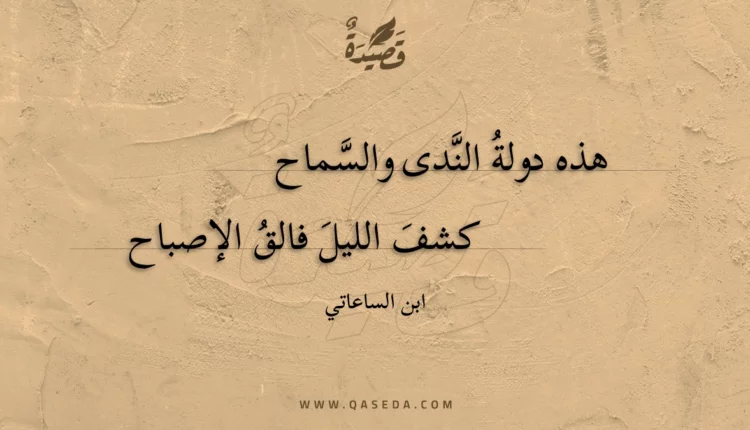 قَصِيدَةٌ
هذه دولةُ النَّدى والسَّماح
كشفَ الليلَ فالقُ الإصباح
ابن الساعاتي
WWW.QASEDA.COM